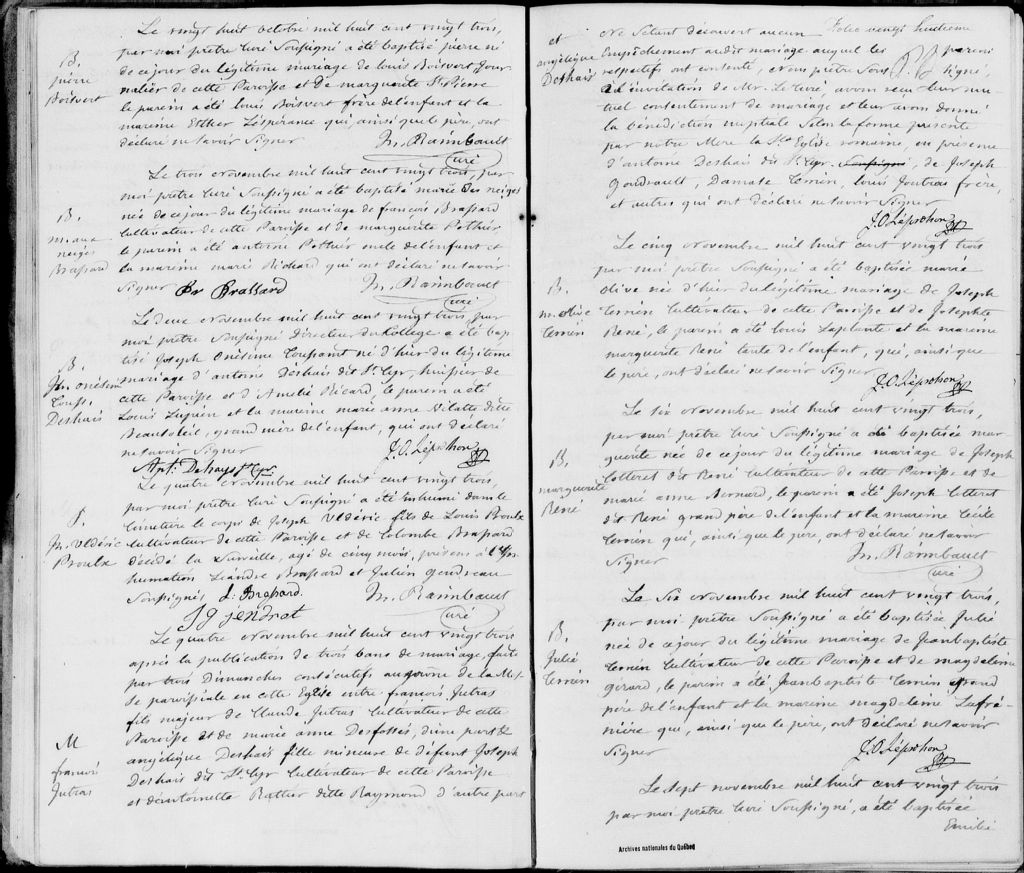 Le vingt huit octobre mil huit cent vingt trois,
par moi prêtre Curé Soussigné a été baptisé pierre né
B.
pierre
Boisvert
de ce jour du légitime mariage de louis Boisvert Jour
nalier de cette Paroisse et de marguerite St Pierre
le parein a été louis Boisvert frère de l'enfant et la
mareine Esther Lespérance qui, ainsi que le père, ont
déclaré ne savoir Signer
In. Raimbault
Curé
Le trois novembre mil huit cent vingt trois, par
moi prêtre Curé Soussigné a été baptisé marie des neiges
B.
m. aux
neiges
Brassard
née de ce jour du légitime mariage de françois Brassard
Cultivateur de cette Paroisse et de marguerite Pothier,
le parein a été antoine Pothier oncle de l'enfant et
la mareine marie Richard qui ont déclaré ne savoir
Signer
fr Brassard
In. Raimbault
Curé
Le deux novembre mil huit cent vingt trois, par
moi prêtre Soussigné Directeur du College a été bap
B.
Jh. onésime
Touss.
Deshais
tisé Joseph Onésime Toussaint né d'hier du légitime
mariage d'antoine Deshais dit St. Cyr, huissier de
cette Paroisse et d'Amelie Ricard, le parein a été
Louis Lupien et la mareine marie anne Vilatte ditte
Beausoleil, grand mère de l'enfant, qui ont déclaré
ne savoir Signer
J. O. Léprohon
Ant. Dehays St Cyr
Le quatre novembre mil huit cent vingt trois,
par moi prêtre Curé Soussigné a été inhumé dans le
S.
Jh. Uldéric
Proulx
Cimetière le corps de Joseph Uldéric fils de Louis Proulx
Cultivateur de cette Paroisse et de Colombe Brassard
décédé la Surveille, agé de cinq mois, présens à l'in-
humation Léandre Brassard et Julien Gendreau
Soussignés
L. Brassard.
In. Raimbault
Curé
J G jendret
Le quatre novembre mil huit cent vingt trois
après la publication de trois bans de mariage, faite
par trois Dimanches consécutifs au prône de la Mes-
se paroissiale en cette Eglise entre francois Jutras
fils majeur de Claude Jutras Cultivateur de cette
Paroisse et de marie anne Desfossés, d'une part &
M
francois
Jutras
angélique Deshais fille mineure de défunt Joseph
Deshais dit St. Cyr Cultivateur de cette Paroisse
et d'antoinette Rattier ditte Raymond d'autre part
Folio vingt huitieme
et
angélique
Deshais
ne S'étant découvert aucun
Empêchement audit mariage auquel les parens
respectifs ont consenti, Nous prêtre Soussigné,
à l'invitation de Mr. Le Curé, avons reçu leur mu-
tuel consentement de mariage et leur avons donné
la bénédiction nuptiale Selon la forme présente
par notre Mere la Ste Eglise romaine, en présence
d'antoine Deshais dit St. Cyr. Soussigné, de Joseph
Goudrault, Damase Terrien, louis Joutras frère,
et autres qui ont déclaré ne savoir Signer
J. O. Léprohon
Le cinq novembre mil huit cent vingt trois
par moi prêtre Soussigné a été baptisée marie
B.
m. olive
Terrien
olive née d'hier du légitime mariage de Joseph
Terrien Cultivateur de cette Paroisse et de Josephte
René, le parein a été louis Laplante et la mareine
marguerite René tante de l'enfant, qui, ainsi que
le père, ont déclaré ne savoir Signer
J. O. Léprohon
Le Six novembre mil huit cent vingt trois,
par moi prêtre Curé Soussigné a été baptisée mar
B.
marguerite
René
guerite née de ce jour du légitime mariage de Joseph
Cotteret dit René Cultivateur de cette Paroisse et de
marie anne Bernard, le parein a été Joseph Cotteret
dit René grand père de l'enfant et la mareine Cécile
Terrien qui, ainsi que le père, ont déclaré ne savoir
Signer
In. Raimbault
Curé
Le Six novembre mil huit cent vingt trois,
par moi prêtre Soussigné a été baptisée Julie
B.
Julie
Terrien
née de ce jour du légitime mariage de Jean baptiste
Terrien Cultivateur de cette Paroisse et de magdeleine
gérard, le parein a été Jean baptiste Terrien grand
père de l'enfant et la mareine magdeleine Lafré-
nière qui, ainsi que le père, ont déclaré ne savoir
Signer
J. O. Léprohon
Le Sept novembre mil huit cent vingt trois
par moi prêtre Curé Soussigné, a été baptisée
Emilie
Archives nationales du Québec